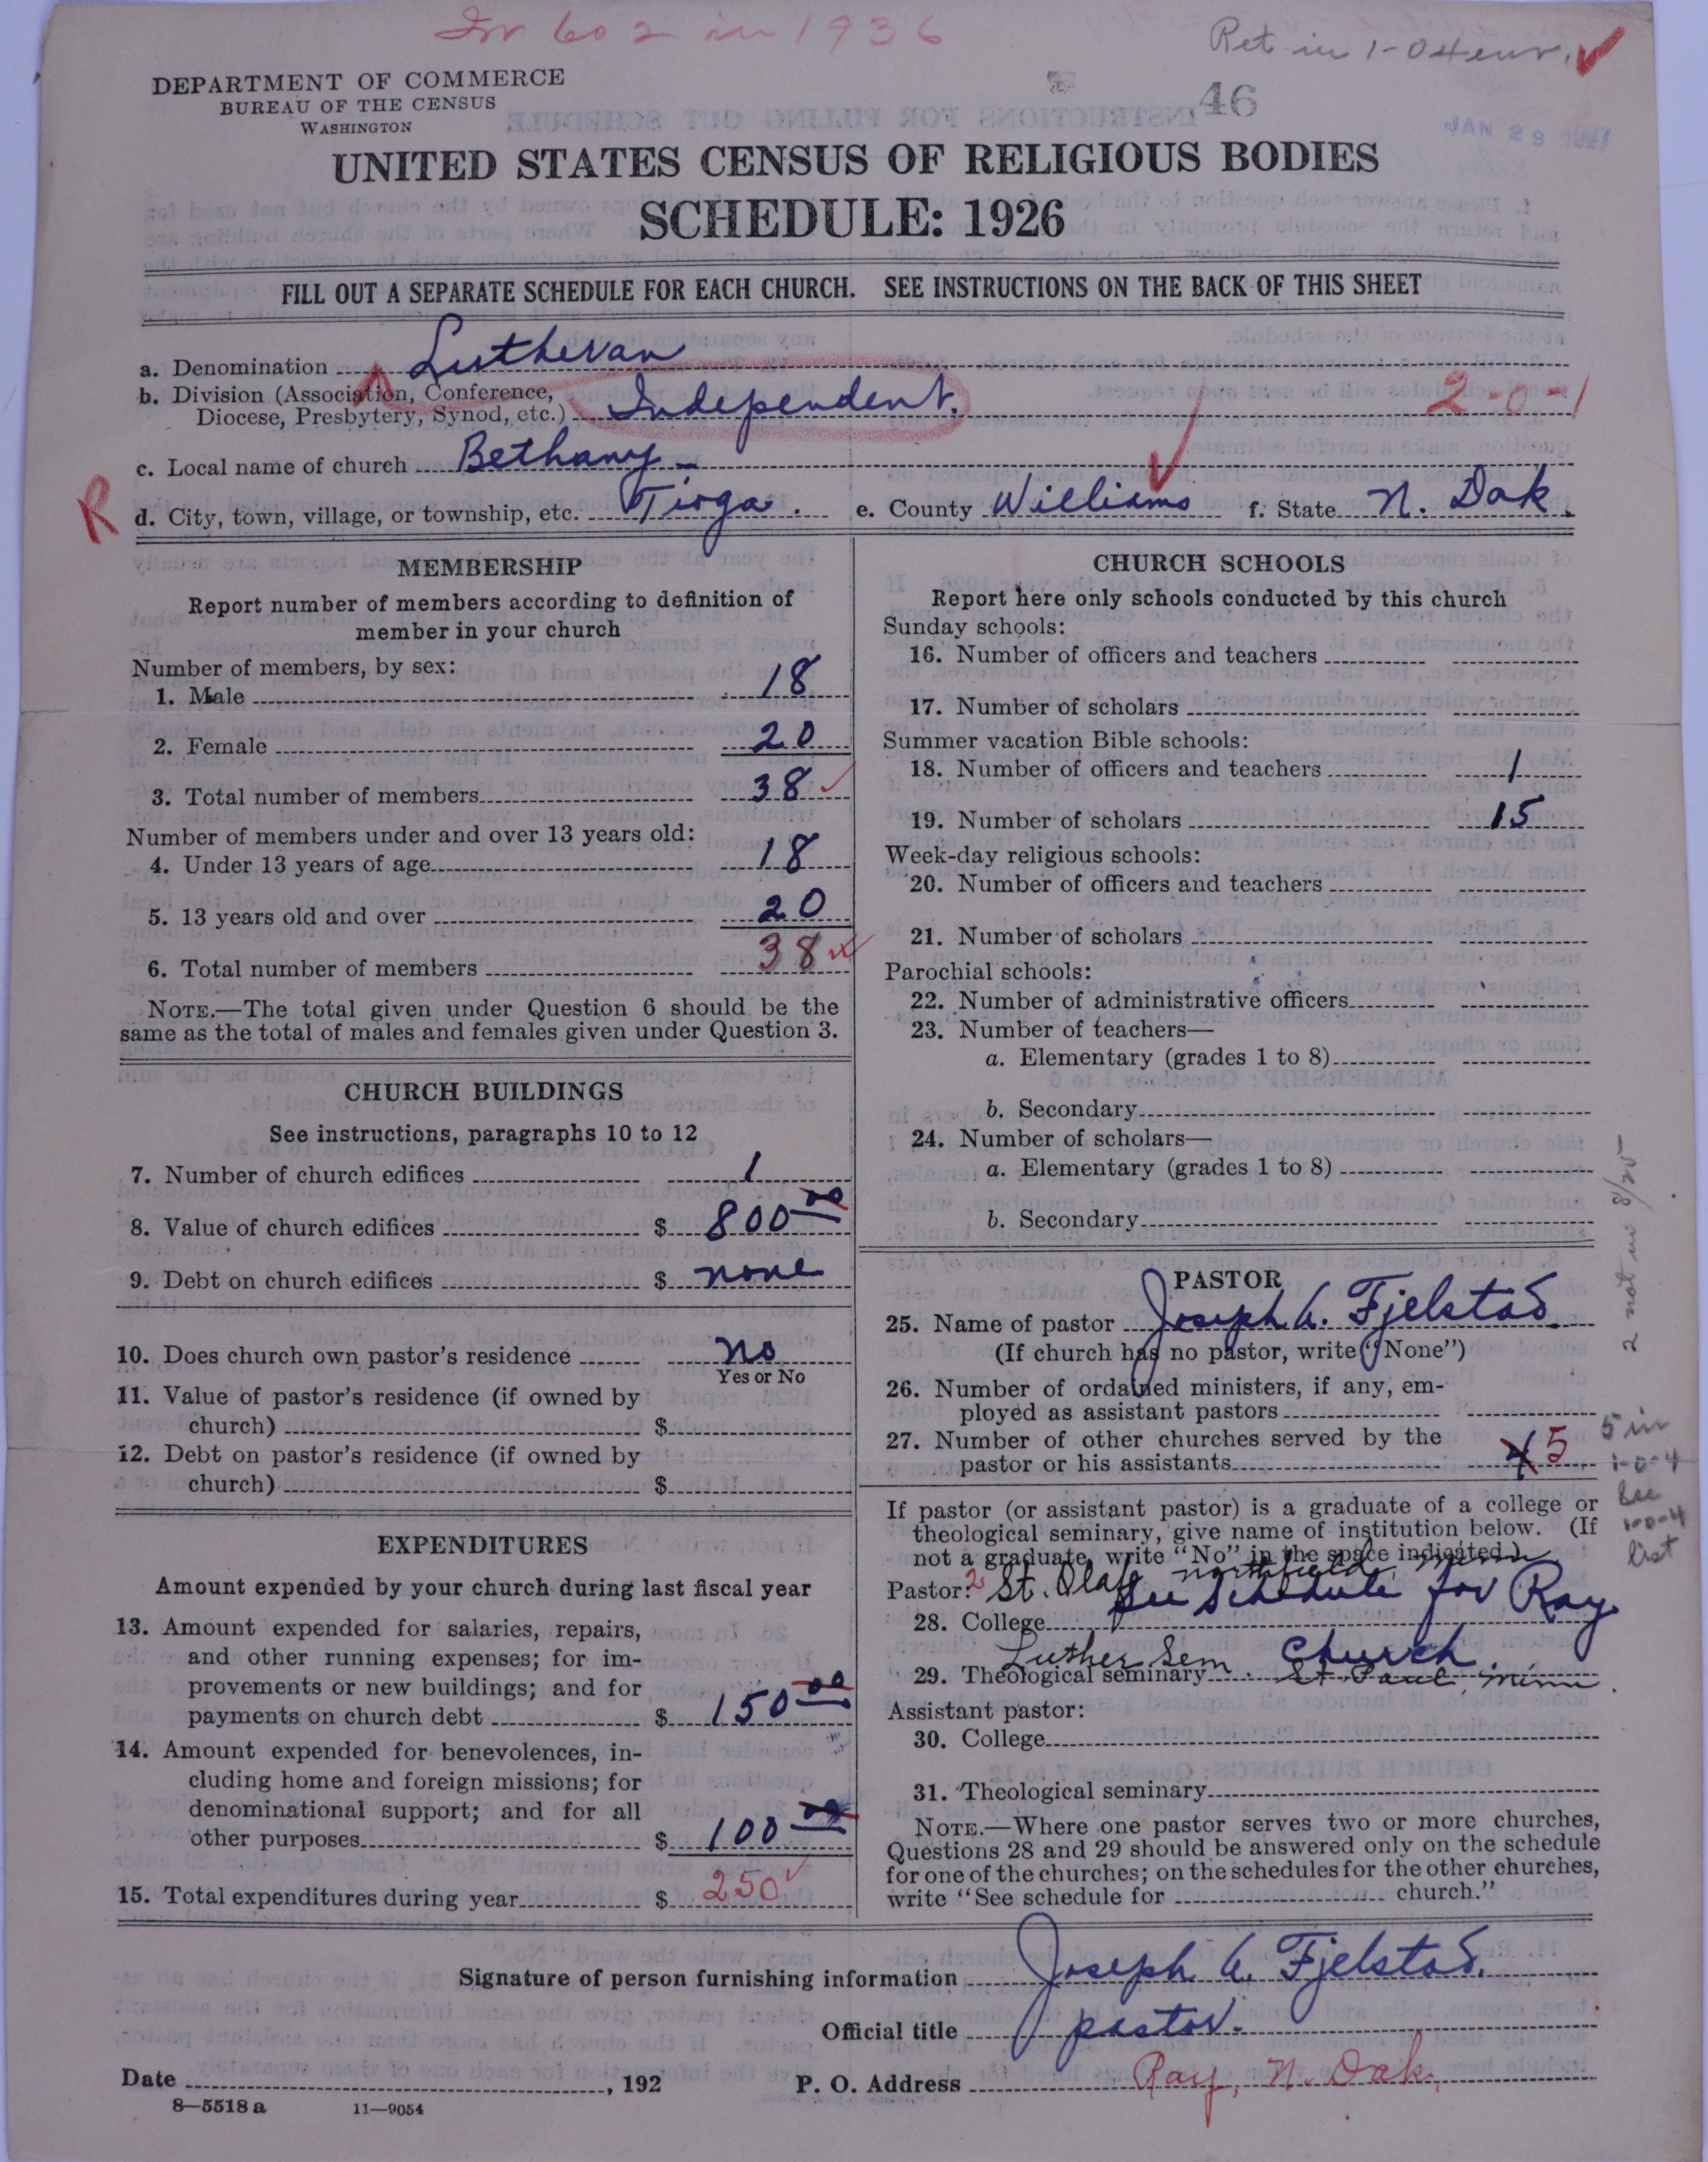 In 602 in 1936
Ret in 1-04 env.
DEPARTMENT OF COMMERCE
BUREAU OF THE CENSUS
WASHINGTON
46
JAN 29 1927
UNITED STATES CENSUS OF RELIGIOUS BODIES
SCHEDULE: 1926
FILL OUT A SEPARATE SCHEDULE FOR EACH CHURCH. SEE INSTRUCTIONS ON THE BACK OF THIS SHEET
a. Denomination Lutheran
b. Division (Association, Conference,
Diocese, Presbytery, Synod, etc.) Independent. 2-0-1
c. Local name of church Bethany
R d. City, town, village, or township, etc. Tioga. e. County Williams f. State N. Dak.
MEMBERSHIP
Report number of members according to definition of
member in your church
Number of members, by sex:
1. Male 18
2. Female 20
3. Total number of members 38
Number of members under and over 13 years old:
4. Under 13 years of age 18
5. 13 years old and over 20
6. Total number of members 38
NOTE.—The total given under Question 6 should be the
same as the total of males and females given under Question 3.
CHURCH BUILDINGS
See instructions, paragraphs 10 to 12
7. Number of church edifices 1
8. Value of church edifices $ 800 00
9. Debt on church edifices $ none
10. Does church own pastor's residence no
Yes or No
11. Value of pastor's residence (if owned by
church) $
12. Debt on pastor's residence (if owned by
church) $
EXPENDITURES
Amount expended by your church during last fiscal year
13. Amount expended for salaries, repairs,
and other running expenses; for im-
provements or new buildings; and for
payments on church debt $ 150 00
14. Amount expended for benevolences, in-
cluding home and foreign missions; for
denominational support; and for all
other purposes $ 100 00
15. Total expenditures during year $ 250
CHURCH SCHOOLS
Report here only schools conducted by this church
Sunday schools:
16. Number of officers and teachers
17. Number of scholars
Summer vacation Bible schools:
18. Number of officers and teachers 1
19. Number of scholars 15
Week-day religious schools:
20. Number of officers and teachers
21. Number of scholars
Parochial schools:
22. Number of administrative officers
23. Number of teachers—
a. Elementary (grades 1 to 8)
b. Secondary
24. Number of scholars—
a. Elementary (grades 1 to 8)
b. Secondary
2 not in 8/25
PASTOR
25. Name of pastor Joseph A. Fjelstad.
(If church has no pastor, write "None")
26. Number of ordained ministers, if any, em-
ployed as assistant pastors
27. Number of other churches served by the
pastor or his assistants 4 5
5 in
1-0-4
See
1-0-4
list
If pastor (or assistant pastor) is a graduate of a college or
theological seminary, give name of institution below. (If
not a graduate, write "No" in the space indicated.)
Pastor: 2 St. Olaf Northfield, Minn
28. College See Schedule for Ray
Church.
29. Theological seminary Luther Sem. St Paul, Minn.
Assistant pastor:
30. College
31. Theological seminary
NOTE.—Where one pastor serves two or more churches,
Questions 28 and 29 should be answered only on the schedule
for one of the churches; on the schedules for the other churches,
write "See schedule for church."
Signature of person furnishing information Joseph A. Fjelstad.
Official title pastor.
Date , 192 P. O. Address Ray, N. Dak.
8—5518 a 11—9054